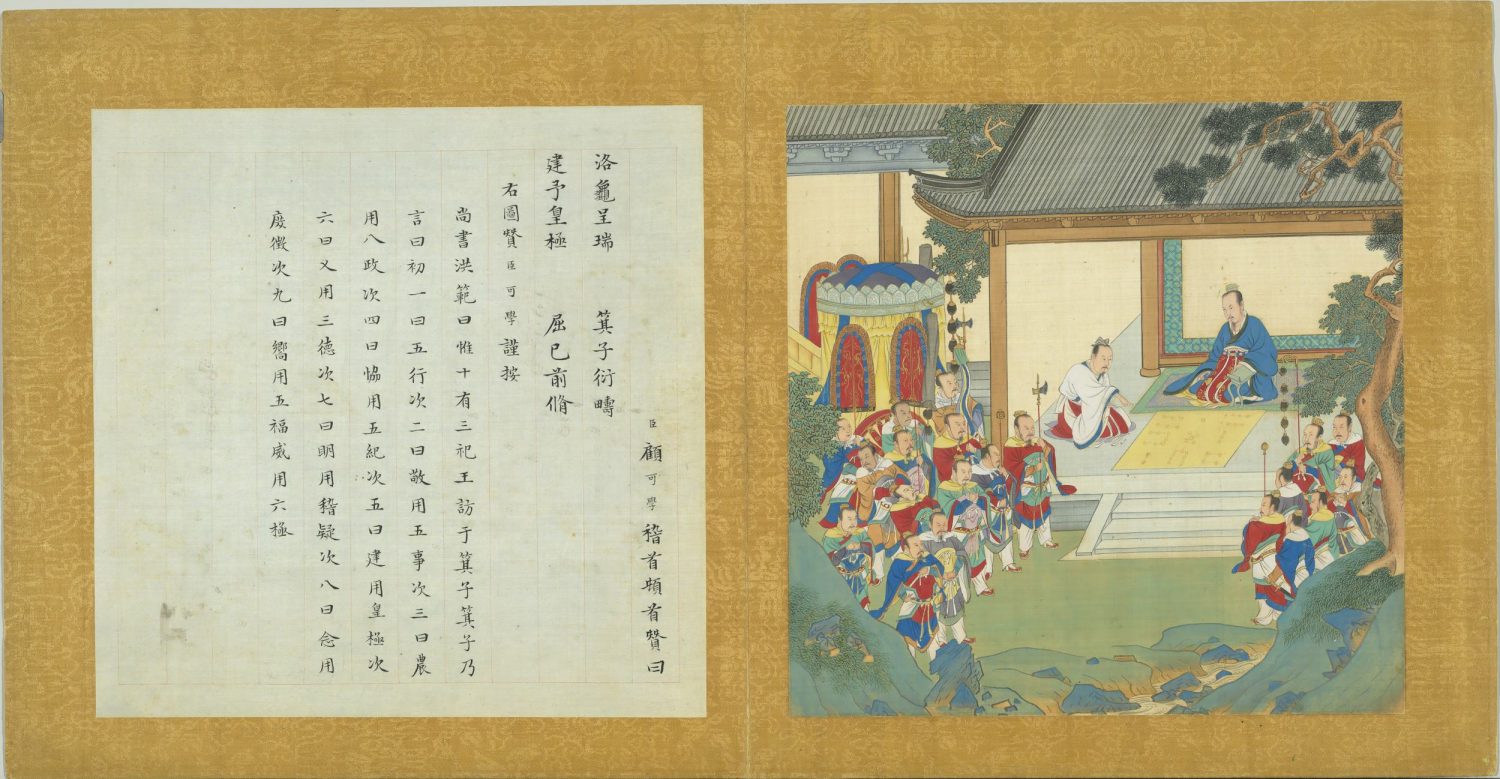 臣顧可學稽首頓首贊曰
洛龜呈瑞 箕子衍疇
建予皇極 屈已前脩
右圖贊臣可學謹按
尚書洪範曰惟十有三祀王訪于箕子箕子乃
言曰初一曰五行次二曰敬用五事次三曰農
用八政次四曰恊用五紀次五曰建用皇極次
六曰乂用三德次七曰明用稽疑次八曰念用
庶徵次九曰嚮用五福威用六極